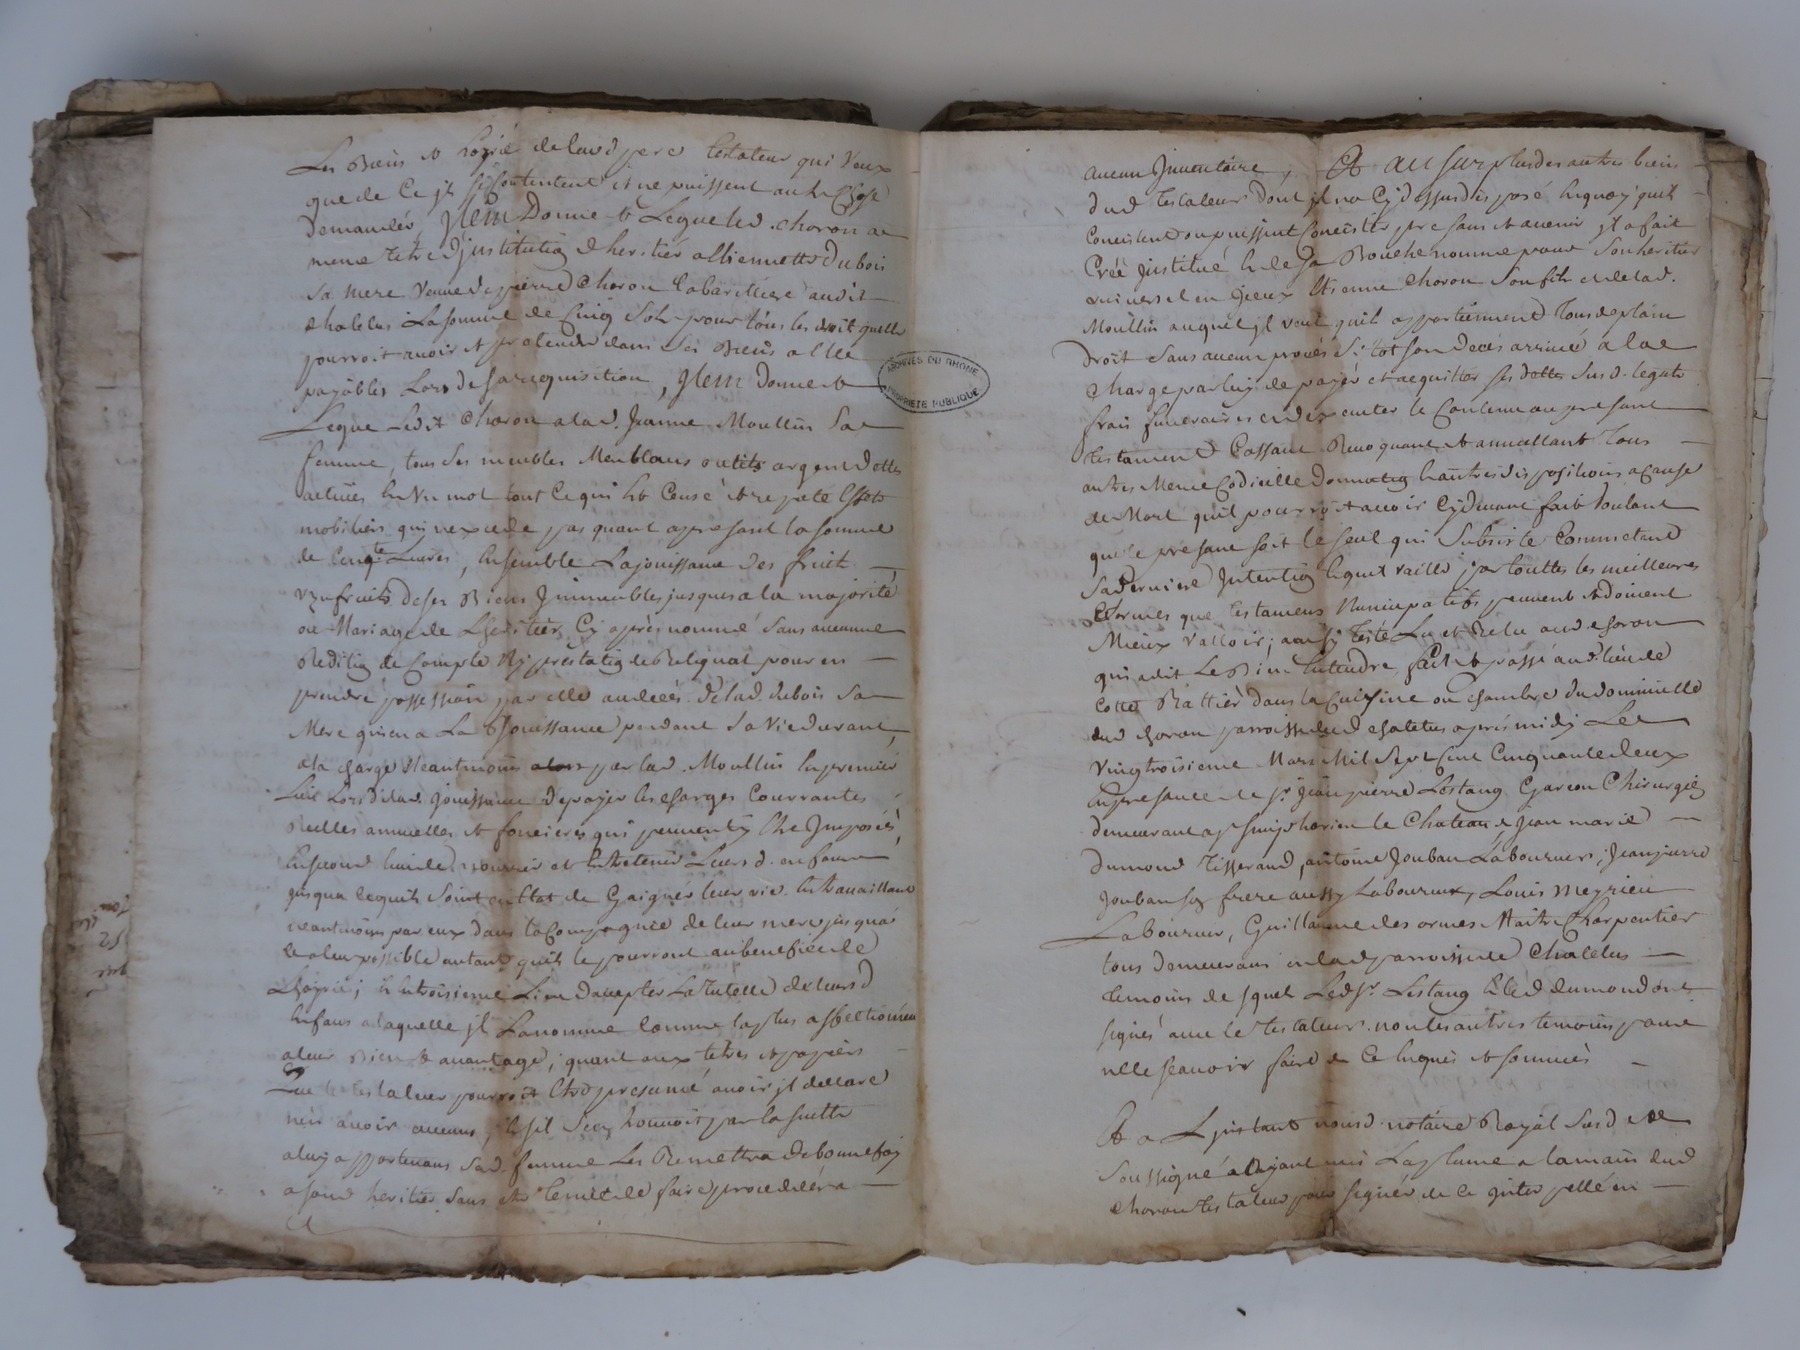 Les Biens & hoyrié delavd pere testateur qui veux
que de Ce jls se Contentent et ne puissent autre Chose
demander, Jtem Donne & Legue led. choron au
meme titre djnstitution dheritier a Etiennette dubois
sa mere veuve de pierre Choron Cabarettiere audit
chatelus La somme de Cinq sols pour tous les droit quelle
pourroit avoir et pretendre dans ses Biens a Elle
payables Lors de sa requisition, Jtem donne &
Legue Ledit Choron a lad. Jeanne Moullin Sa
femme, tous ses meubles Meublans outils argent dettes
actives En un mot tout Ce qui Est Censé & reputé Effets
mobiliers qui nexcede pas quant apresant la somme
de Cinqte Livres, Ensemble La jouissance des fruit
Uzufruits de ses Biens Jmmeubles jusques a la majorité
ou Mariage de Lheritier Cy apres nommé sans aucunne
Reditiõ de Compte Ny prestatiõ de Reliquat pour en
prendre possession par elle au decès de lad. dubois Sa
Mere qui en a La Jouissance pendant Sa Vie durant,
ala charge Neantmoins par lad. Moullin En premier
Lieu Lors de lad. jouissance de payer les charges Courrantes
Reelles annuelles & foncieres qui peuvent y Etre Jmposés,
En second lieu de nourrir et Entretenir Leursd. enfans
jusqua Ce quils Soint en Etat de Gaigner leur vie. En travaillant
neantmoins par eux dans la Compagnie de leur mere jusqua
Ce a leur possible autant quils le pourront au benefice de
Lhoyrié; Et En troisieme Lieu daccepter La Tutelle de leursd
Enfans a laquelle jl La nomme Comme la plus affectionnée
a leur Bien & avantage, quant aux titres & papiers
Que le testateur pourroit Etre presumé avoir jl declare
nen avoir aucuns, Et sil sen trouvoit par la suitte
a luy appartenans Sad. femme Les Remettra de bonnefoy
a sond heritier sans etre tenue de faire proceder a
aucun Jnventaire, Et au surplus des autres biens
dud testateur dont jl na Cy dessus disposé En quoy quils
Concistent ou puissent Concister present & avenir jl a fait
Créé Jnstitué & de Sa Bouche nommé pour Son heritier
universel en Jceux Etienne choron Son fils & de lad.
Moullin auquel jl veut quils appartiennent Tous de plain
droit sans aucun procès Si tot son deces arrivé a la
charge par luy de payer et acquitter ses dettes Susd. legats
frais funeraires et dexecuter le Contenu au presant
testament Cassant Revoquant & annullant Tous
autres Meme Codicille Donnatiõ Et autres dispositions a Cause
de Mort quil pourroit avoir Cy devant fait Voulant
que le presant soit le seul qui Subsiste Comme tenant
Sa derniere Jntentiõ Et quil vaille par touttes les meilleures
formes que testamens Nuncupatifs peuvent & doivent
Mieux valloir; ainsy Testé Lu et Relu aud choron
qui a dit Le Bien Entendre, fait & passé aud. lieu de
Cotte Rattier dans la Cuisine ou chambre du domicille
dud choron parroisse dud chatelus apres midy Le
vingtroisieme Mars Mil Sept Cent Cinquante deux
En presance de sr. Jean pierre Lestang Garçon Chirurgiẽ
demeurant a st Simphorien le Chateau Jean marie
dumond Tisserand, antoine Jouban Laboureur, Jean pierre
Jouban son frere aussy Laboureur, Louis Meyrieu
Laboureur, Guillaume des ormes Maitre Charpentier
tous demeurans en lad parroisse de Chatelus
temoins desquels Ledsr. Lestang & led dumond ont
signés avec le testateur. non les autres temoins pour
ne le scavoir faire de Ce Enquis & sommés
Et a Ljnstant nousd. notaire Royal susd. &
soussigné ayant mis La plume a la main dud
choron testateur pour signer de Ce jnterpellé en
ARCHIVES DU RHONE
PROPRIETE PUBLIQUE